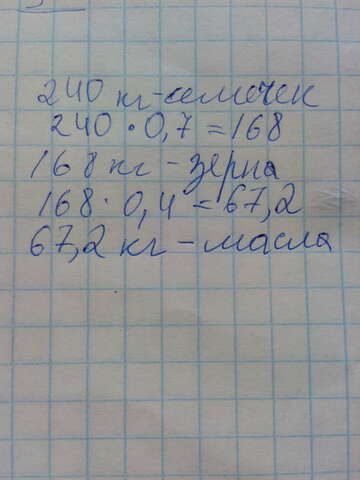 240 кг-семечек
240 · 0,7 = 168
168 кг - зерна
168 · 0,4 = 67,2
67,2 кг - масла